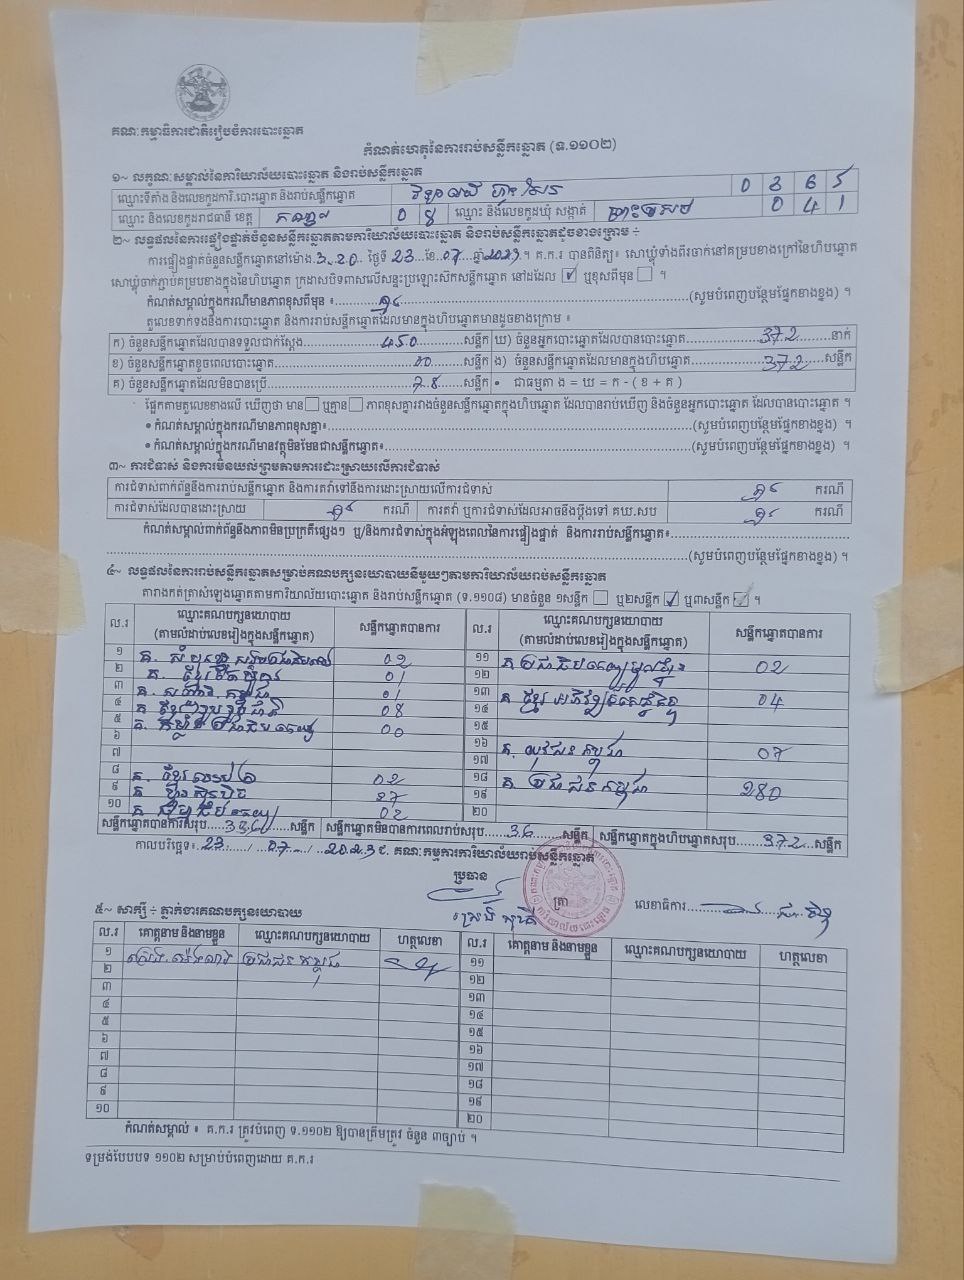 គណៈកម្មាធិការជាតិរៀបចំការបោះឆ្នោត
កំណត់ហេតុនៃការរាប់សន្លឹកឆ្នោត (ទ.១១០២)
១~ លក្ខណៈសម្គាល់នៃការិយាល័យបោះឆ្នោត និងរាប់សន្លឹកឆ្នោត
ឈ្មោះទីតាំង និងលេខកូដការិ.បោះឆ្នោត និងរាប់សន្លឹកឆ្នោត 0 3 6 5
ឈ្មោះ និងលេខកូដរាជធានី ខេត្ត កណ្តាល 0 8 ឈ្មោះ និងលេខកូដឃុំ សង្កាត់ 0 4 1
២~ លទ្ធផលនៃការផ្ទៀងផ្ទាត់ចំនួនសន្លឹកឆ្នោតតាមការិយាល័យបោះឆ្នោត និងរាប់សន្លឹកឆ្នោតដូចខាងក្រោម ÷
ការផ្ទៀងផ្ទាត់ចំនួនសន្លឹកឆ្នោតនៅម៉ោង 3:20 ថ្ងៃទី 23 ខែ 07 ឆ្នាំ 2023 ។ គ.ក.រ បានពិនិត្យ៖ សោឃ្លុំទាំងពីរចាក់នៅគម្របខាងក្រៅនៃហិបឆ្នោត
សោឃ្លុំចាក់ភ្ជាប់គម្របខាងក្នុងនៃហិបឆ្នោត ក្រដាសបិទពាសលើសន្ទះប្រឡោះស៊កសន្លឹកឆ្នោត នៅដដែល ☑ ឬខុសពីមុន ☐ ។
កំណត់សម្គាល់ក្នុងករណីមានភាពខុសពីមុន ៖ គ្មាន (សូមបំពេញបន្ថែមផ្នែកខាងខ្នង) ។
តួលេខទាក់ទងនឹងការបោះឆ្នោត និងការរាប់សន្លឹកឆ្នោតដែលមានក្នុងហិបឆ្នោតមានដូចខាងក្រោម ៖
ក) ចំនួនសន្លឹកឆ្នោតដែលបានទទួលជាក់ស្តែង 450 សន្លឹក ឃ) ចំនួនអ្នកបោះឆ្នោតដែលបានបោះឆ្នោត 372 នាក់
ខ) ចំនួនសន្លឹកឆ្នោតខូចពេលបោះឆ្នោត 00 សន្លឹក ង) ចំនួនសន្លឹកឆ្នោតដែលមានក្នុងហិបឆ្នោត 372 សន្លឹក
គ) ចំនួនសន្លឹកឆ្នោតដែលមិនបានប្រើ 78 សន្លឹក • ជាធម្មតា ង = ឃ = ក - ( ខ + គ )
ផ្អែកតាមតួលេខខាងលើ ឃើញថា មាន ☐ ឬគ្មាន ☐ ភាពខុសគ្នារវាងចំនួនសន្លឹកឆ្នោតក្នុងហិបឆ្នោត ដែលបានរាប់ឃើញ និងចំនួនអ្នកបោះឆ្នោត ដែលបានបោះឆ្នោត ។
• កំណត់សម្គាល់ក្នុងករណីមានភាពខុសគ្នា៖ (សូមបំពេញបន្ថែមផ្នែកខាងខ្នង) ។
• កំណត់សម្គាល់ក្នុងករណីមានវត្ថុមិនមែនជាសន្លឹកឆ្នោត៖ (សូមបំពេញបន្ថែមផ្នែកខាងខ្នង) ។
៣~ ការជំទាស់ និងការមិនយល់ព្រមតាមការដោះស្រាយលើការជំទាស់
ការជំទាស់ពាក់ព័ន្ធនឹងការរាប់សន្លឹកឆ្នោត និងការតវ៉ាទៅនឹងការដោះស្រាយលើការជំទាស់ គ្មាន ករណី
ការជំទាស់ដែលបានដោះស្រាយ គ្មាន ករណី ការតវ៉ា ឬការជំទាស់ដែលអាចនឹងប្តឹងទៅ គឃ.សប គ្មាន ករណី
កំណត់សម្គាល់ពាក់ព័ន្ធនឹងភាពមិនប្រក្រតីផ្សេងៗ ឬ/និងការជំទាស់ក្នុងអំឡុងពេលនៃការផ្ទៀងផ្ទាត់ និងការរាប់សន្លឹកឆ្នោត៖
(សូមបំពេញបន្ថែមផ្នែកខាងខ្នង) ។
៤~ លទ្ធផលនៃការរាប់សន្លឹកឆ្នោតសម្រាប់គណបក្សនយោបាយនីមួយៗតាមការិយាល័យរាប់សន្លឹកឆ្នោត
តារាងកត់ត្រាសំឡេងឆ្នោតតាមការិយាល័យបោះឆ្នោត និងរាប់សន្លឹកឆ្នោត (ទ.១១០៨) មានចំនួន ១សន្លឹក ☐ ឬ២សន្លឹក ☑ ឬ៣សន្លឹក ☑ ។
ល.រ ឈ្មោះគណបក្សនយោបាយ (តាមលំដាប់លេខរៀងក្នុងសន្លឹកឆ្នោត) សន្លឹកឆ្នោតបានការ ល.រ ឈ្មោះគណបក្សនយោបាយ (តាមលំដាប់លេខរៀងក្នុងសន្លឹកឆ្នោត) សន្លឹកឆ្នោតបានការ
១ 02 ១១ 02
២ 01 ១២
៣ 01 ១៣ 04
៤ 08 ១៤
៥ 00 ១៥
៦ ១៦ គ. យុវជនកម្ពុជា 07
៧ ១៧
៨ 02 ១៨ គ. ប្រជាជនកម្ពុជា 280
៩ 27 ១៩
១០ 02 ២០
សន្លឹកឆ្នោតបានការសរុប 336 សន្លឹក សន្លឹកឆ្នោតមិនបានការពេលរាប់សរុប 36 សន្លឹក សន្លឹកឆ្នោតក្នុងហិបឆ្នោតសរុប 372 សន្លឹក
កាលបរិច្ឆេទ៖ 23 / 07 / 2023 ជ. គណៈកម្មការការិយាល័យរាប់សន្លឹកឆ្នោត
ប្រធាន
ត្រា
លេខាធិការ
៥~ សាក្សី ÷ ភ្នាក់ងារគណបក្សនយោបាយ
ល.រ គោត្តនាម និងនាមខ្លួន ឈ្មោះគណបក្សនយោបាយ ហត្ថលេខា ល.រ គោត្តនាម និងនាមខ្លួន ឈ្មោះគណបក្សនយោបាយ ហត្ថលេខា
១ ប្រជាជនកម្ពុជា ១១
២ ១២
៣ ១៣
៤ ១៤
៥ ១៥
៦ ១៦
៧ ១៧
៨ ១៨
៩ ១៩
១០ ២០
កំណត់សម្គាល់ ៖ គ.ក.រ ត្រូវបំពេញ ទ.១១០២ ឱ្យបានត្រឹមត្រូវ ចំនួន ៣ច្បាប់ ។
ទម្រង់បែបបទ ១១០២ សម្រាប់បំពេញដោយ គ.ក.រ